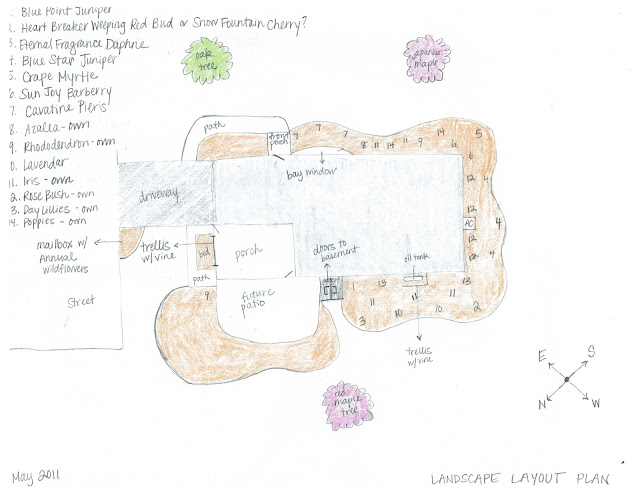 . Blue Point Juniper
2. Heart Breaker Weeping Red Bud or Snow Fountain Cherry?
3. Eternal Fragrance Daphne
4. Blue Star Juniper
5. Crape Myrtle
6. Sun Joy Barberry
7. Cavatine Pieris
8. Azalea - own
9. Rhododendron - own
0. Lavendar
11. Iris - own
2. Rose Bush - own
3. Day Lillies - own
14. Poppies - own
oak
tree
japanese
maple
path
front
porch
9 7 7 8 11 14 11 9 14 5
1 6 6
bay window
driveway
12 4
12
AC 4
12
12 4
mailbox w/
Annual
wildflowers
trellis
w/vine
bed
porch
doors to
basement
oil tank
path
9
future
patio
Street
1 13 11 13
11 11
3 10 10 2
trellis
w/vine
red
maple
tree
E S
N W
May 2011
LANDSCAPE LAYOUT PLAN